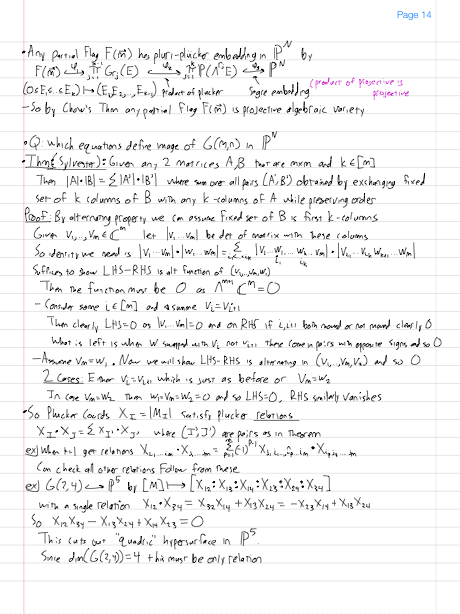 Page 14
• Any partial Flag F(m⃗) has pluri-plücker embedding in ℙ^N by
F(m⃗) ↪^{φ₁} ∏_{j=1}^k Gr_j(E) ↪^{φ₂} ∏_{j=1}^k ℙ(Λ^j E) ↪^{φ₃} ℙ^N
(0⊆E₁⊆...⊆E_k) ↦ (E₁,E₂,...,E_{k-1}) product of plucker Segre embedding (product of projective is projective
- So by Chow's Thm any partial Flag F(m⃗) is projective algebraic variety
• Q: which equations define image of G(m,n) in ℙ^N
• Thm (Sylvester): Given any 2 matrices A,B that are mxm and k∈[m]
Then |A|·|B| = Σ|A'|·|B'| where sum over all pairs (A',B') obtained by exchanging fixed
set of k columns of B with any k-columns of A while preserving order
Proof: By alternating property we can assume fixed set of B is first k-columns
Given v₁,...,v_m ∈ ℂ^m let |v₁...v_m| be det of matrix with these columns
So identity we need is |v₁...v_m|·|w₁...w_m| = Σ_{i₁<...<i_k} |v₁...w₁...w_k...v_m|·|v_{i₁}...v_{i_k} w_{k+1}...w_m|
Suffices to show LHS-RHS is alt function of (v₁,...,v_m,w₁)
Then the function must be 0 as Λ^{m+1} ℂ^m = 0
- Consider some i∈[m] and assume v_i = v_{i+1}
Then clearly LHS=0 as |v₁...v_m|=0 and on RHS if i,i+1 both moved or not moved clearly 0
What is left is when w swapped with v_i not v_{i+1} these come in pairs with opposite signs and so 0
- Assume v_m=w₁. Now we will show LHS-RHS is alternating in (v₁,...,v_m,w₂) and so 0
2 Cases: Either v_i=v_{i+1} which is just as before or v_m=w₂
In case v_m=w₂ then w₁=v_m=w₂=0 and so LHS=0, RHS similarly vanishes
• So Plucker Coords X_I = |M_I| satisfy plucker relations
X_I·X_J = Σ X_{I'}·X_{J'} where (I',J') are pairs as in theorem
ex) When k=1 get relations
Can check all other relations follow from these
ex) G(2,4) ↪ ℙ⁵ by [M] ↦ [X₁₂:X₁₃:X₁₄:X₂₃:X₂₄:X₃₄]
with a single relation X₁₂·X₃₄ = X₃₂X₁₄ + X₁₃X₂₄ = -X₂₃X₁₄ + X₁₃X₂₄
So X₁₂X₃₄ - X₁₃X₂₄ + X₁₄X₂₃ = 0
This cuts out "quadric" hypersurface in ℙ⁵.
Since dim(G(2,4))=4 this must be only relation